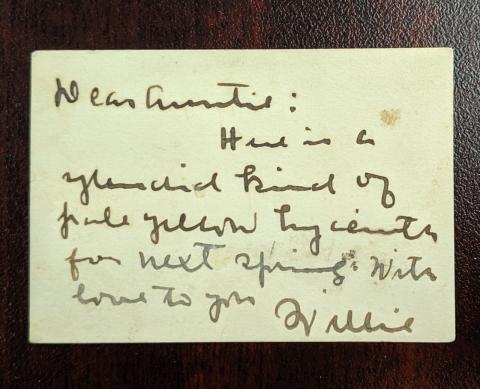 Dear Auntie:
Here is a
splendid kind of
pale yellow hyacinth
for next spring. With
love to you
Willie